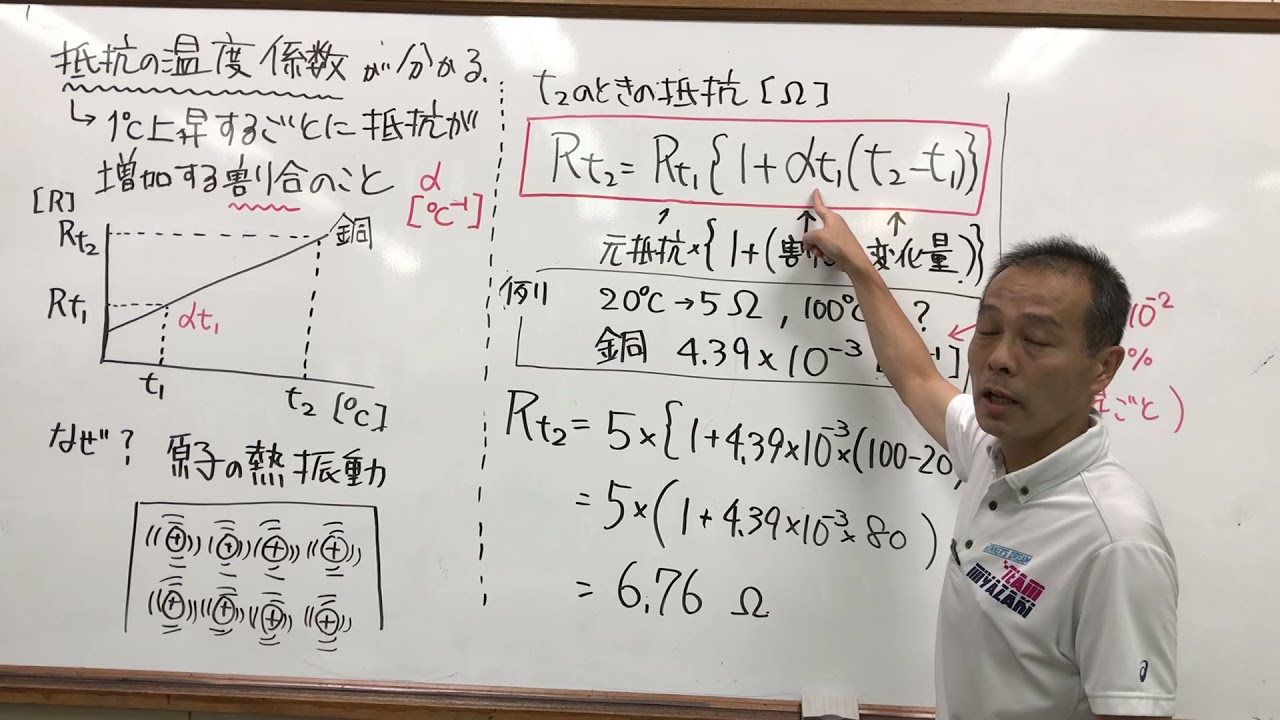 抵抗の温度係数が分かる.
↳1℃上昇するごとに抵抗が
増加する割合のこと α
[℃⁻¹]
[R]
Rt₂
銅
Rt₁
αt₁
t₁ t₂ [℃]
なぜ? 原子の熱振動
+ + + +
+ + + +
t₂のときの抵抗 [Ω]
Rt₂ = Rt₁{1+αt₁(t₂-t₁)}
↑ ↑ ↑
元抵抗×{1+(割 変化量)}
例) 20℃→5Ω, 100℃ ?
銅 4.39×10⁻³ ⁻¹]
Rt₂ = 5×{1+4.39×10⁻³×(100-20
= 5×(1+4.39×10⁻³×80)
= 6.76 Ω
10⁻²
%
ごと)
TEAM
MIYAZAKI